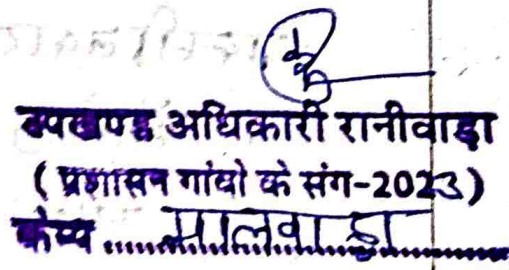 उपखण्ड अधिकारी रानीवाड़ा
( प्रशासन गांवो के संग-2023 )
केम्प ..... मालवाड़ा .....